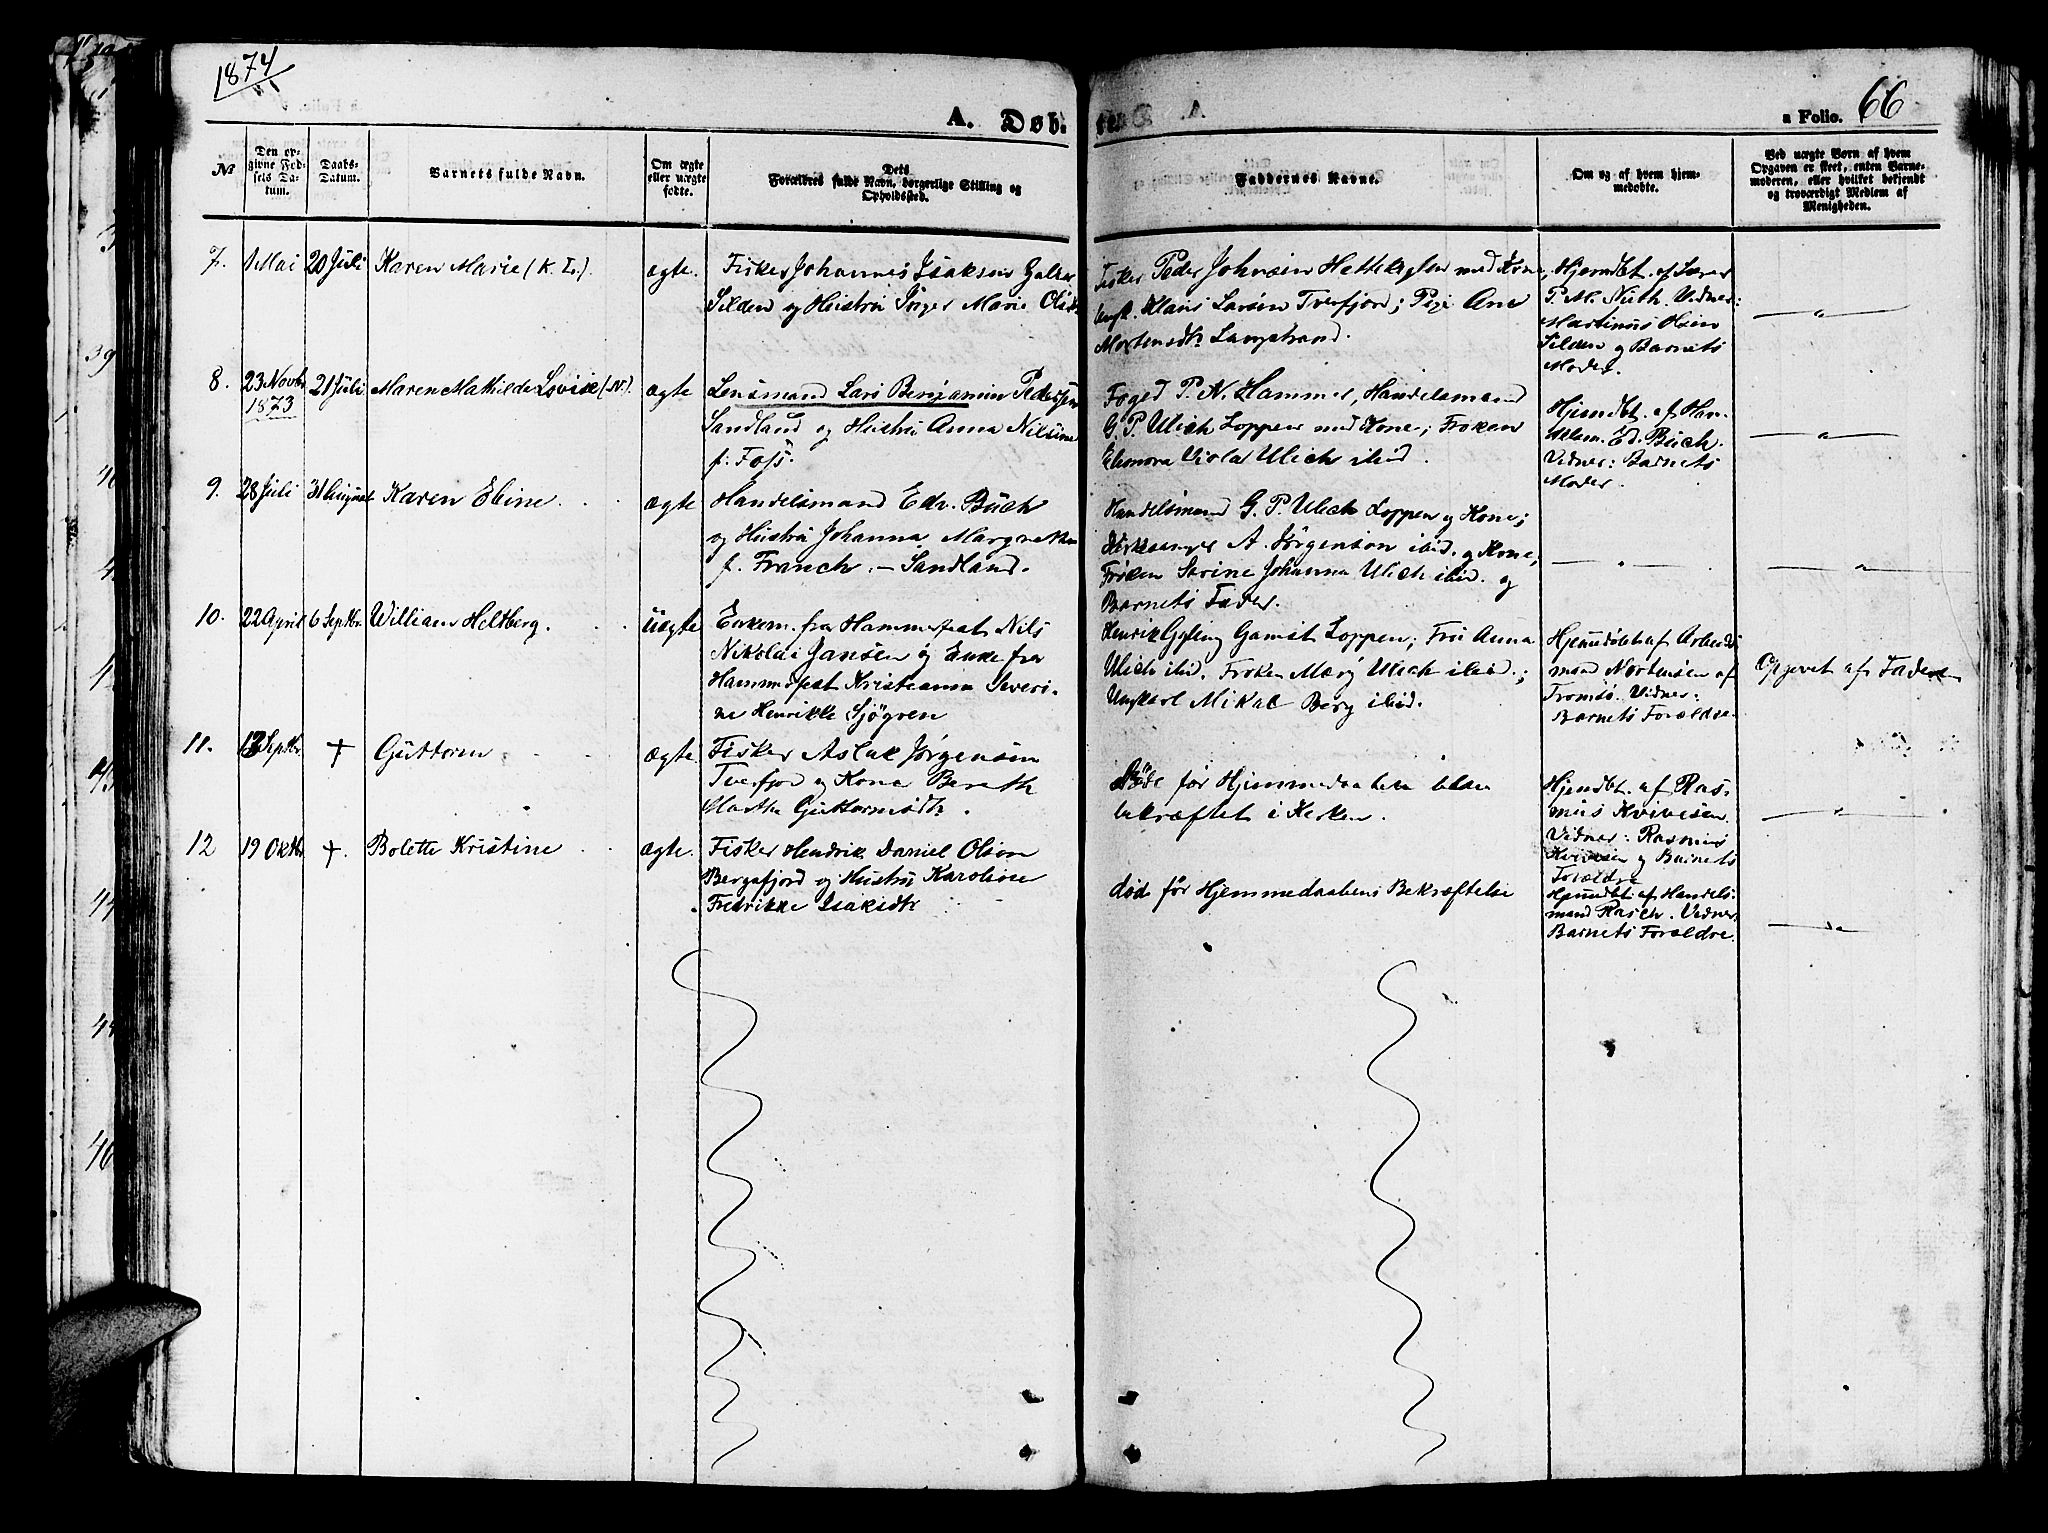 1874
A. Døb-
a Folio. 66
№
Den op-
givne Fød-
sels Da-
tum.
Daabs-
Datum.
Barnets fulde Navn.
Om ægte
eller uægte
fødte.
Dets
Forældres fulde Navn, borgerlige Stilling og
Opholdssted.
Faddernes Navne.
Om og af hvem hjem-
medøbte.
Ved uægte Børn af hvem
Opgaven er skeet, enten Barne-
moderen, eller hvilket bekjendt
og troværdigt Medlem af
Menigheden.
7. 1 Mai 20 Juli Karen Marie (K. L.). ægte.
Fisker Johannes Isaksen
Silden og Hustru Inger Marie
Fisker Peder Johnsen med Kone,
Ungk. Hans Larsen Tverfjord; Pige Ane
Mortensdtr Langstrand.
Hjemdbt. af Lærer
P. M. Nuth. Vidner:
Martinus
Silden og Barnets
Moder.
8. 23 Novbr 1873 21 Juli Maren Mathilde Lovise (N). ægte
Lensmand Lars Benjamin Pedersen
Sandland og Hustru Anna Nilsine
f. Foss.
Foged P. N. Hammer, Handelsmand
G. P. Ulich Loppen med Kone; Frøken
Eleonora Viola Ulich ibid.
Hjemdbt. af Han-
delsm. Ed. Buch.
Vidner: Barnets
Moder.
9. 28 Juli 31 August Karen Eline ægte
Handelsmand Edv. Buch
og Hustru Johanna Margrethe
f. Franch. - Sandland.
Handelsmand G. P. Ulich Loppen og Kone;
Kirkesanger A. Jørgensen ibid. og Kone;
Frøken Sørine Johanna Ulich ibid. og
Barnets Fader.
10. 22 April 6 Septbr. William Heltberg. uægte
Enkem. fra Hammerfest Nils
Nikolai Jansen og Enke fra
Hammerfest Kristianna Severi-
ne Henrikke Sjøgren
Henrik Gyling Gamst Loppen; Fru Anna
Ulich ibid. Frøken Mary Ulich ibid.;
Ungkarl Mikal Berg ibid.
Hjemdøbt af Arbeids
mand Mortensen af
Tromsø. Vidner:
Barnets Forældre.
Opgivet af Faderen
11. 13 Septbr. † Guttorm ægte
Fisker Aslak Jørgensen
Tverfjord og Kone Bereth
Martha Guttormsdtr.
Døde før Hjemmedaaben blev
bekræftet i Kirken.
Hjemdbt. af Ras-
mus Kvivesen.
Vidner: Rasmus
Kvivesen og Barnets
Forældre
12 19 Oktbr. †. Bolette Kristine ægte.
Fisker Hendrik Daniel Olsen
Bergsfjord og Hustru Karoline
Fredrikke Isaksdtr
død før Hjemmedaabens Bekræftelse
Hjemdbt af Handels
mand Rasch. Vidner,
Barnets Forældre.